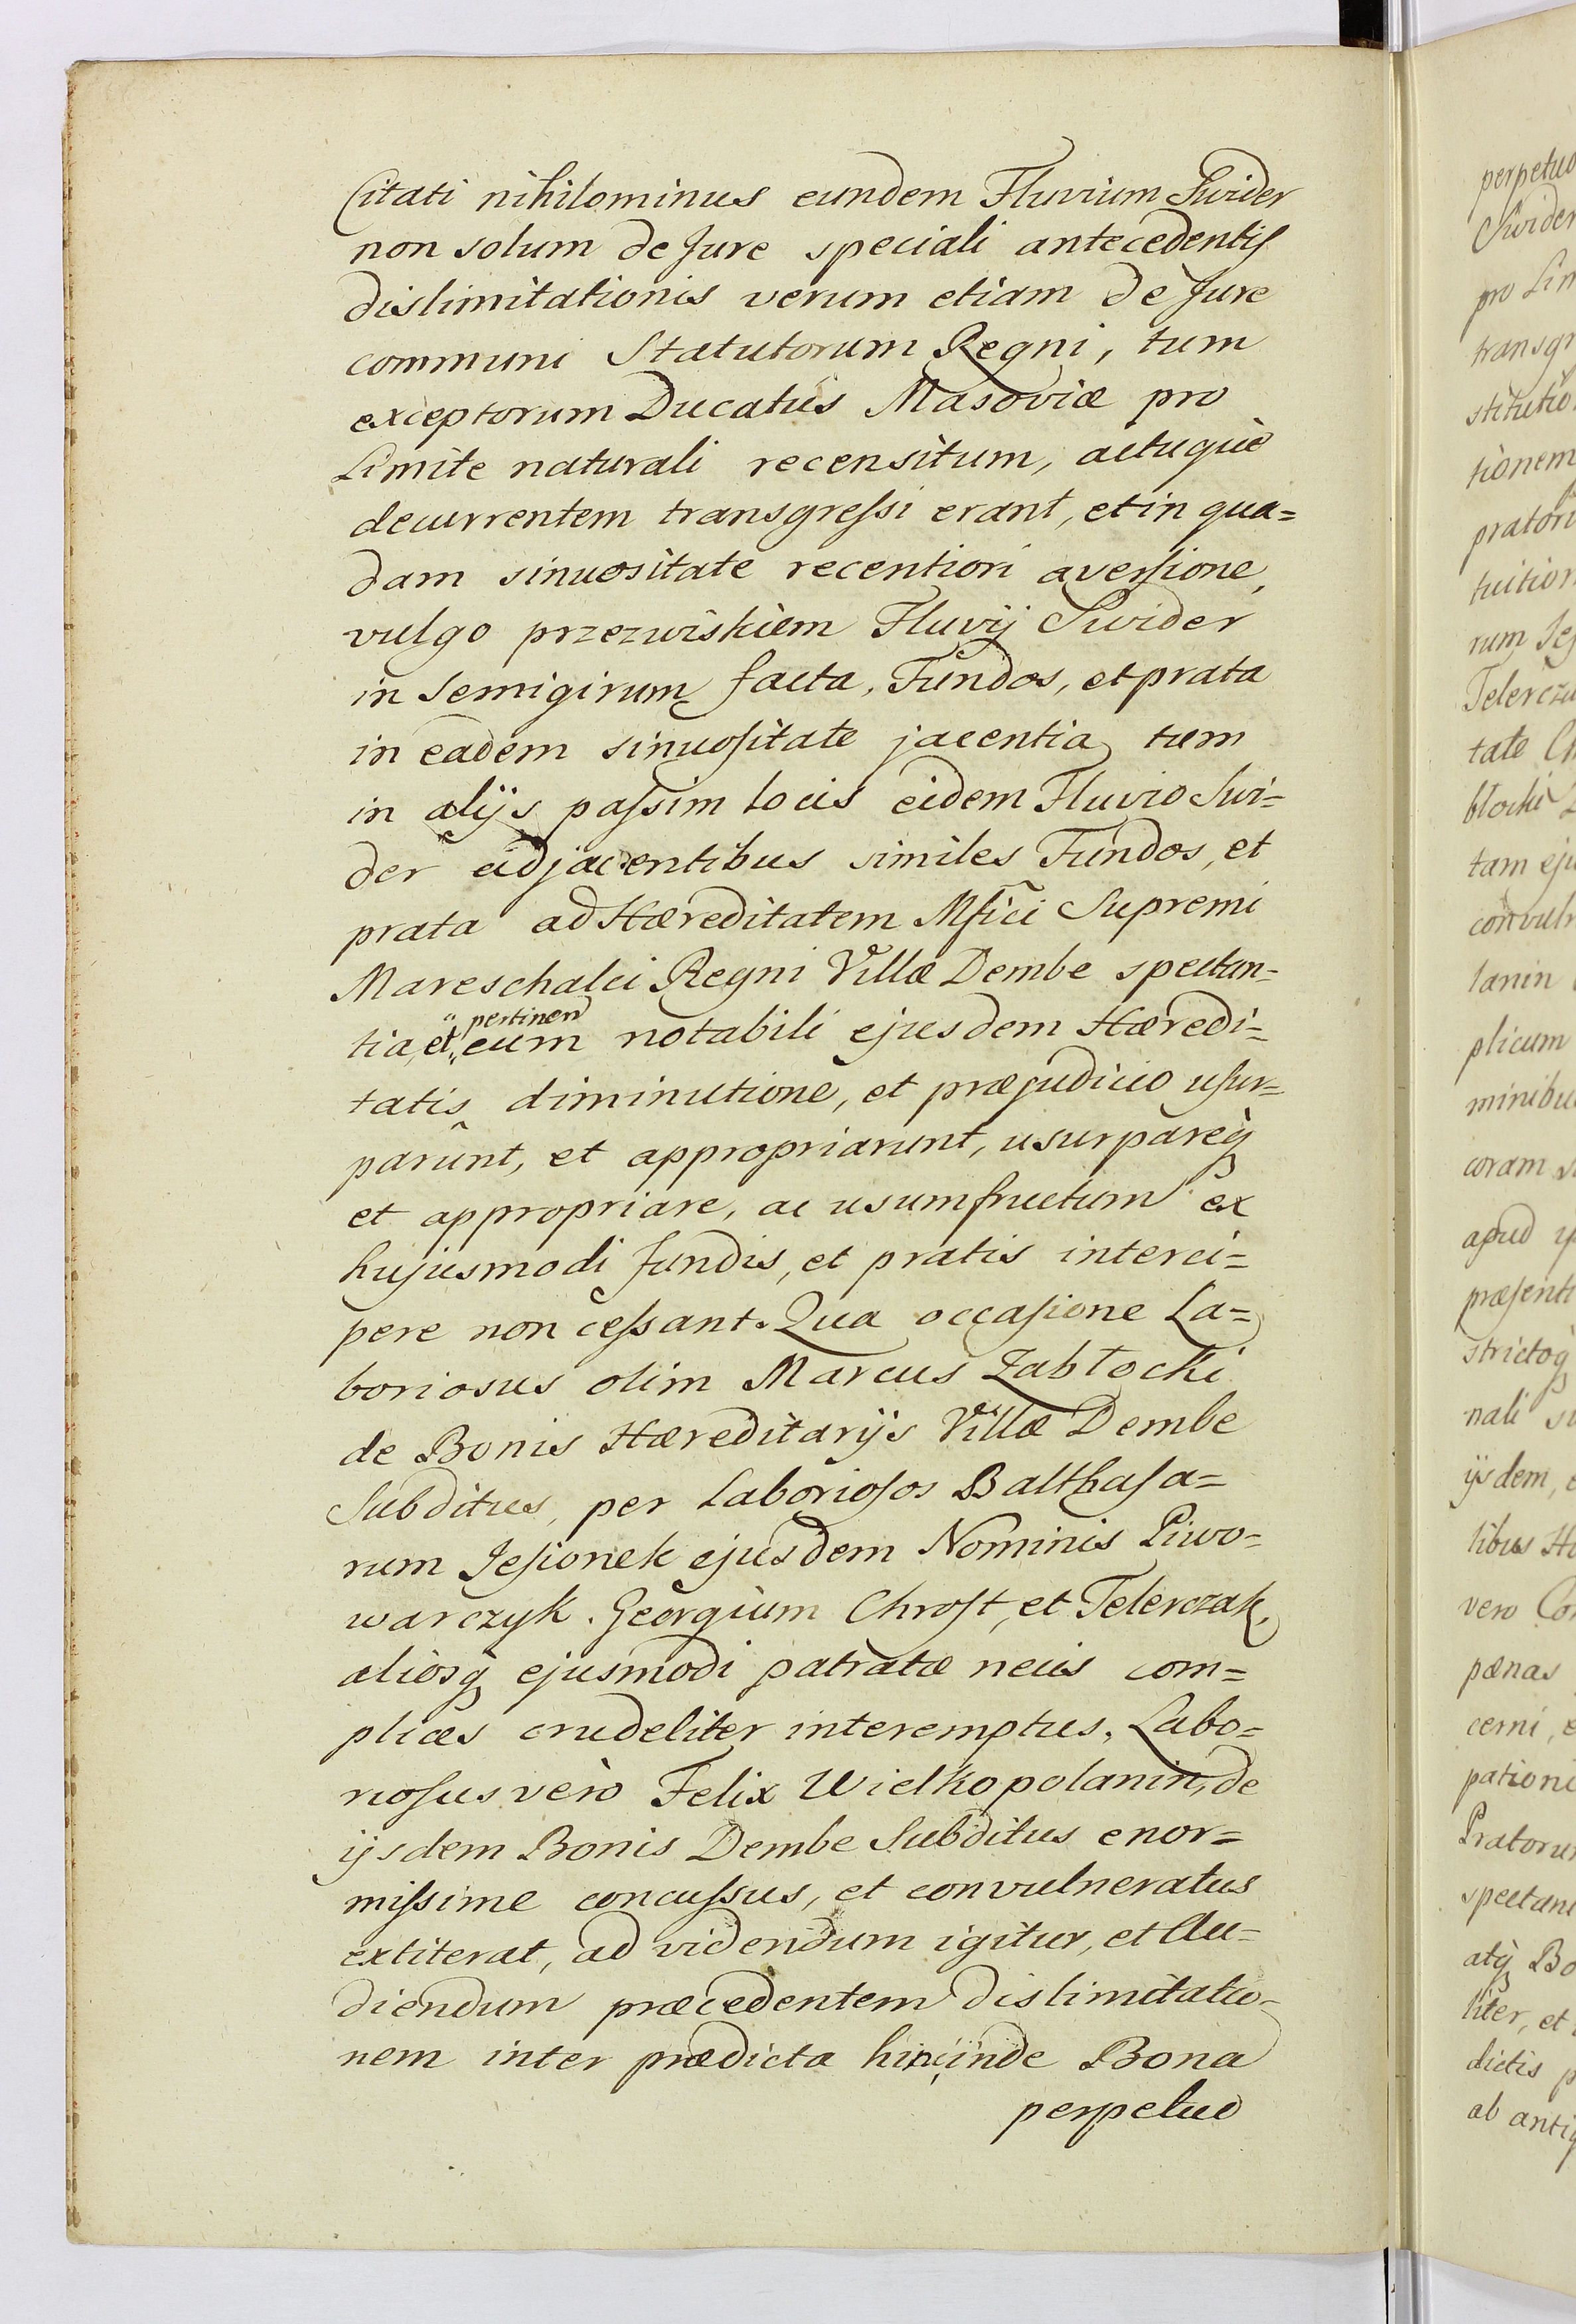 Citati nihilominus eundem Fluvium Swider
non solum de Jure speciali antecedentis
dislimitationis verum etiam de Jure
communi Statutorum Regni, tum
exceptorum Ducatus Masoviæ pro
Limite naturali recensitum, actuque
decurrentem transgressi erant, et in qua=
dam sinuositate recentiori aversione,
vulgo przezwiskiem Fluvij Swider
in Semigirum facta, Fundos, et prata
in eadem sinuositate jacentia, tum
in alijs passim locis eidem Fluvio Swi=
der adjacentibus similes Fundos, et
prata ad Hæreditatem Mfici Supremi
Mareschalci Regni Villæ Dembe spectan=
tia, et pertinen cum notabili ejusdem Hæredi=
tatis diminutione, et præjudicio usur=
parûnt, et appropriarunt, usurpareq
et appropriare, ac usumfructum ex
hujusmodi fundis, et pratis interci=
pere non cessant. Qua occasione La=
boriosus olim Marcus Zabłocki
de Bonis Hæreditarijs Villæ Dembe
Subditus, per Laboriosos Balthasa=
rum Jesionek ejusdem Nominis Piwo=
warczyk. Georgium Chrost, et Telerczak,
aliosq ejusmodi patratæ necis com=
plices crudeliter interemptus, Labo=
riosus vero Felix Wielkopolanin, de
ijsdem Bonis Dembe Subditus enor=
missime concussus, et convulneratus
extiterat, ad videndum igitur, et Au=
diendum præcedentem dislimitatio=
nem inter prædicta hincinde Bona
perpetuo
perpetuo
Swider
pro Lim
transgr
stitutio
tionem
pratori
tuition
rum Jes
Telerczu
tate Ch
błocki
tam eju
convuln
lanin
plicum
minibu
coram
apud
præsenti
strictoq
nali
ijsdem,
libus Hæ
vero Con
pænas
cerni, e
patione
Pratorum
spectan
atq Bo
liter, et
dictis p
ab antiq